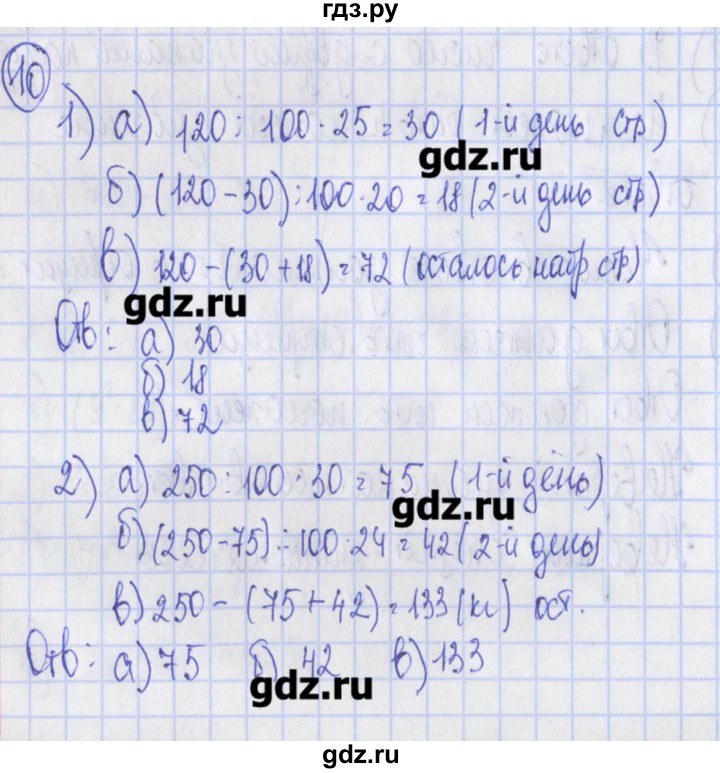 гдз.ру
40
1) а) 120 : 100 · 25 = 30 (1-й день стр)
gdz.ru
б) (120 - 30) : 100 · 20 = 18 (2-й день стр)
в) 120 - (30 + 18) = 72 (осталось напр стр)
gdz.ru
Отв: а) 30
б) 18
в) 72
2) а) 250 : 100 : 30 = 75 (1-й день)
gdz.ru
б) (250 - 75) : 100 · 24 = 42 (2-й день)
в) 250 - (75 + 42) = 133 (кг) ост.
Отв: а) 75 б) 42 в) 133
gdz.ru
gdz.ru